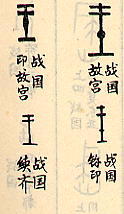 战国
印故宫
战国
印
战国
印故宫
战国
续齐